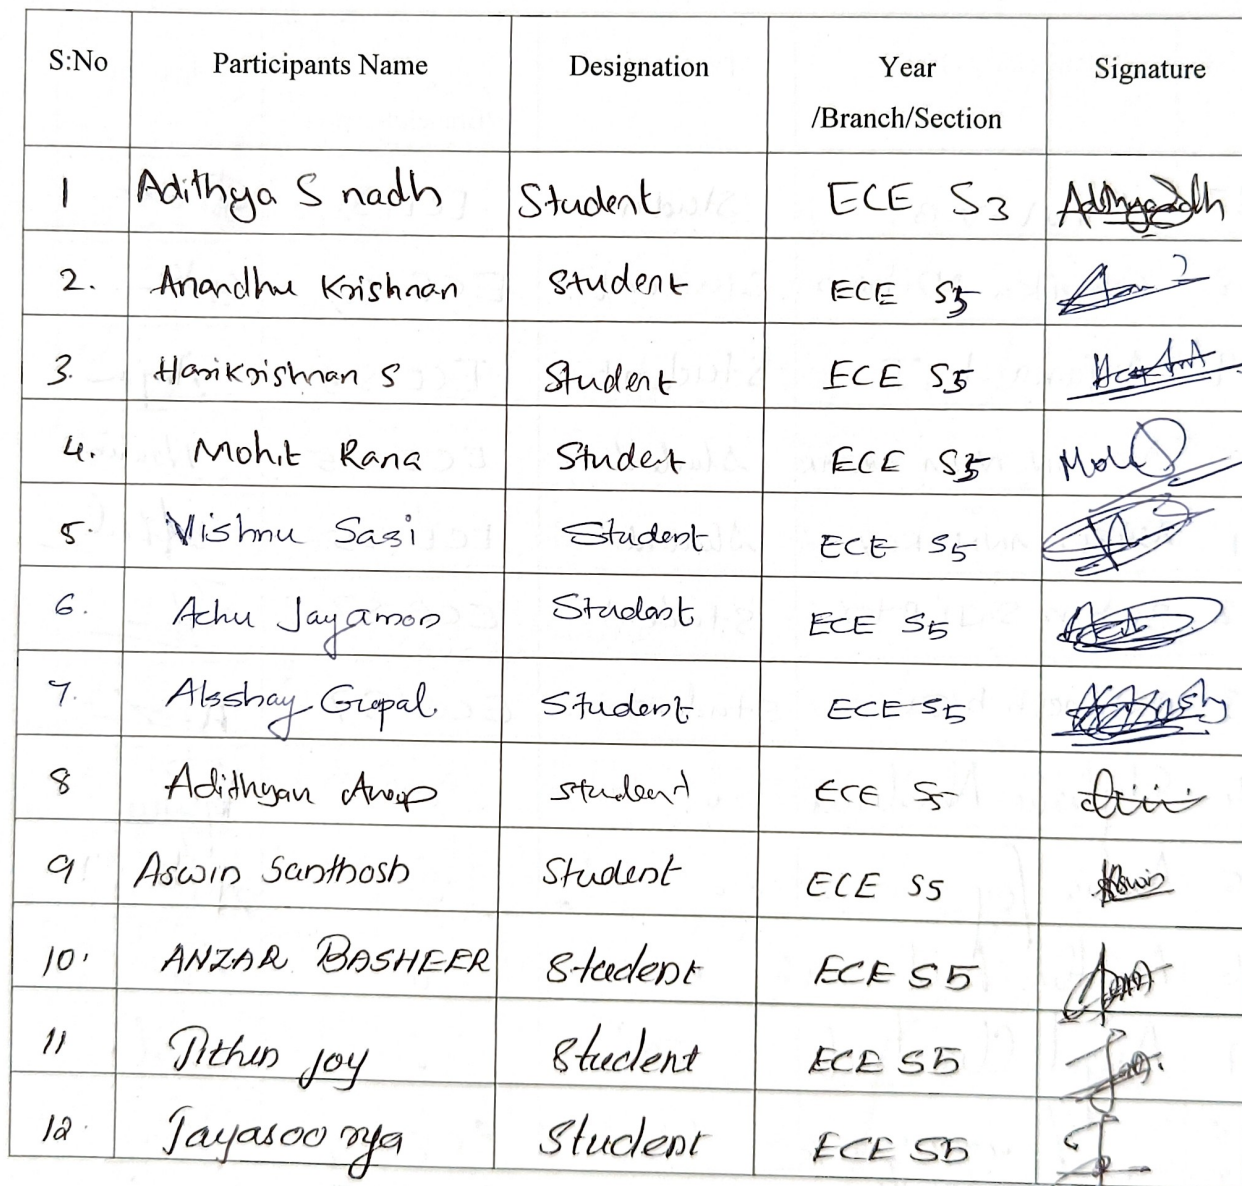 S:No Participants Name Designation Year /Branch/Section Signature
1 Adithya S nadh Student ECE S3
2. Anandhu Krishnan Student ECE S5
3. Harikrishnan S Student ECE S5
4. Mohit Rana Student ECE S5
5. Vishnu Sasi Student ECE S5
6. Achu Jayamon Student ECE S5
7. Akshay Gopal Student ECE S5
8 Adithyan Anop Student ECE S5
9 Aswin Santhosh Student ECE S5 Aswin
10. ANZAR BASHEER Student ECE S5
11 Jithin Joy Student ECE S5
12. Jayasoorya Student ECE S5